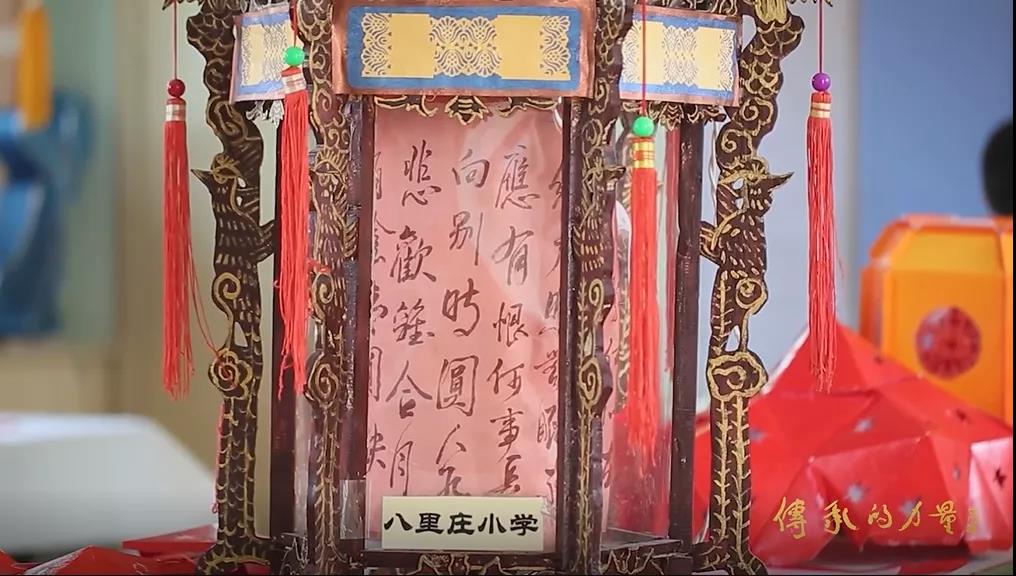 應有恨何事長
向别時圓人有
悲歡離合月
八里庄小学
傳承的力量